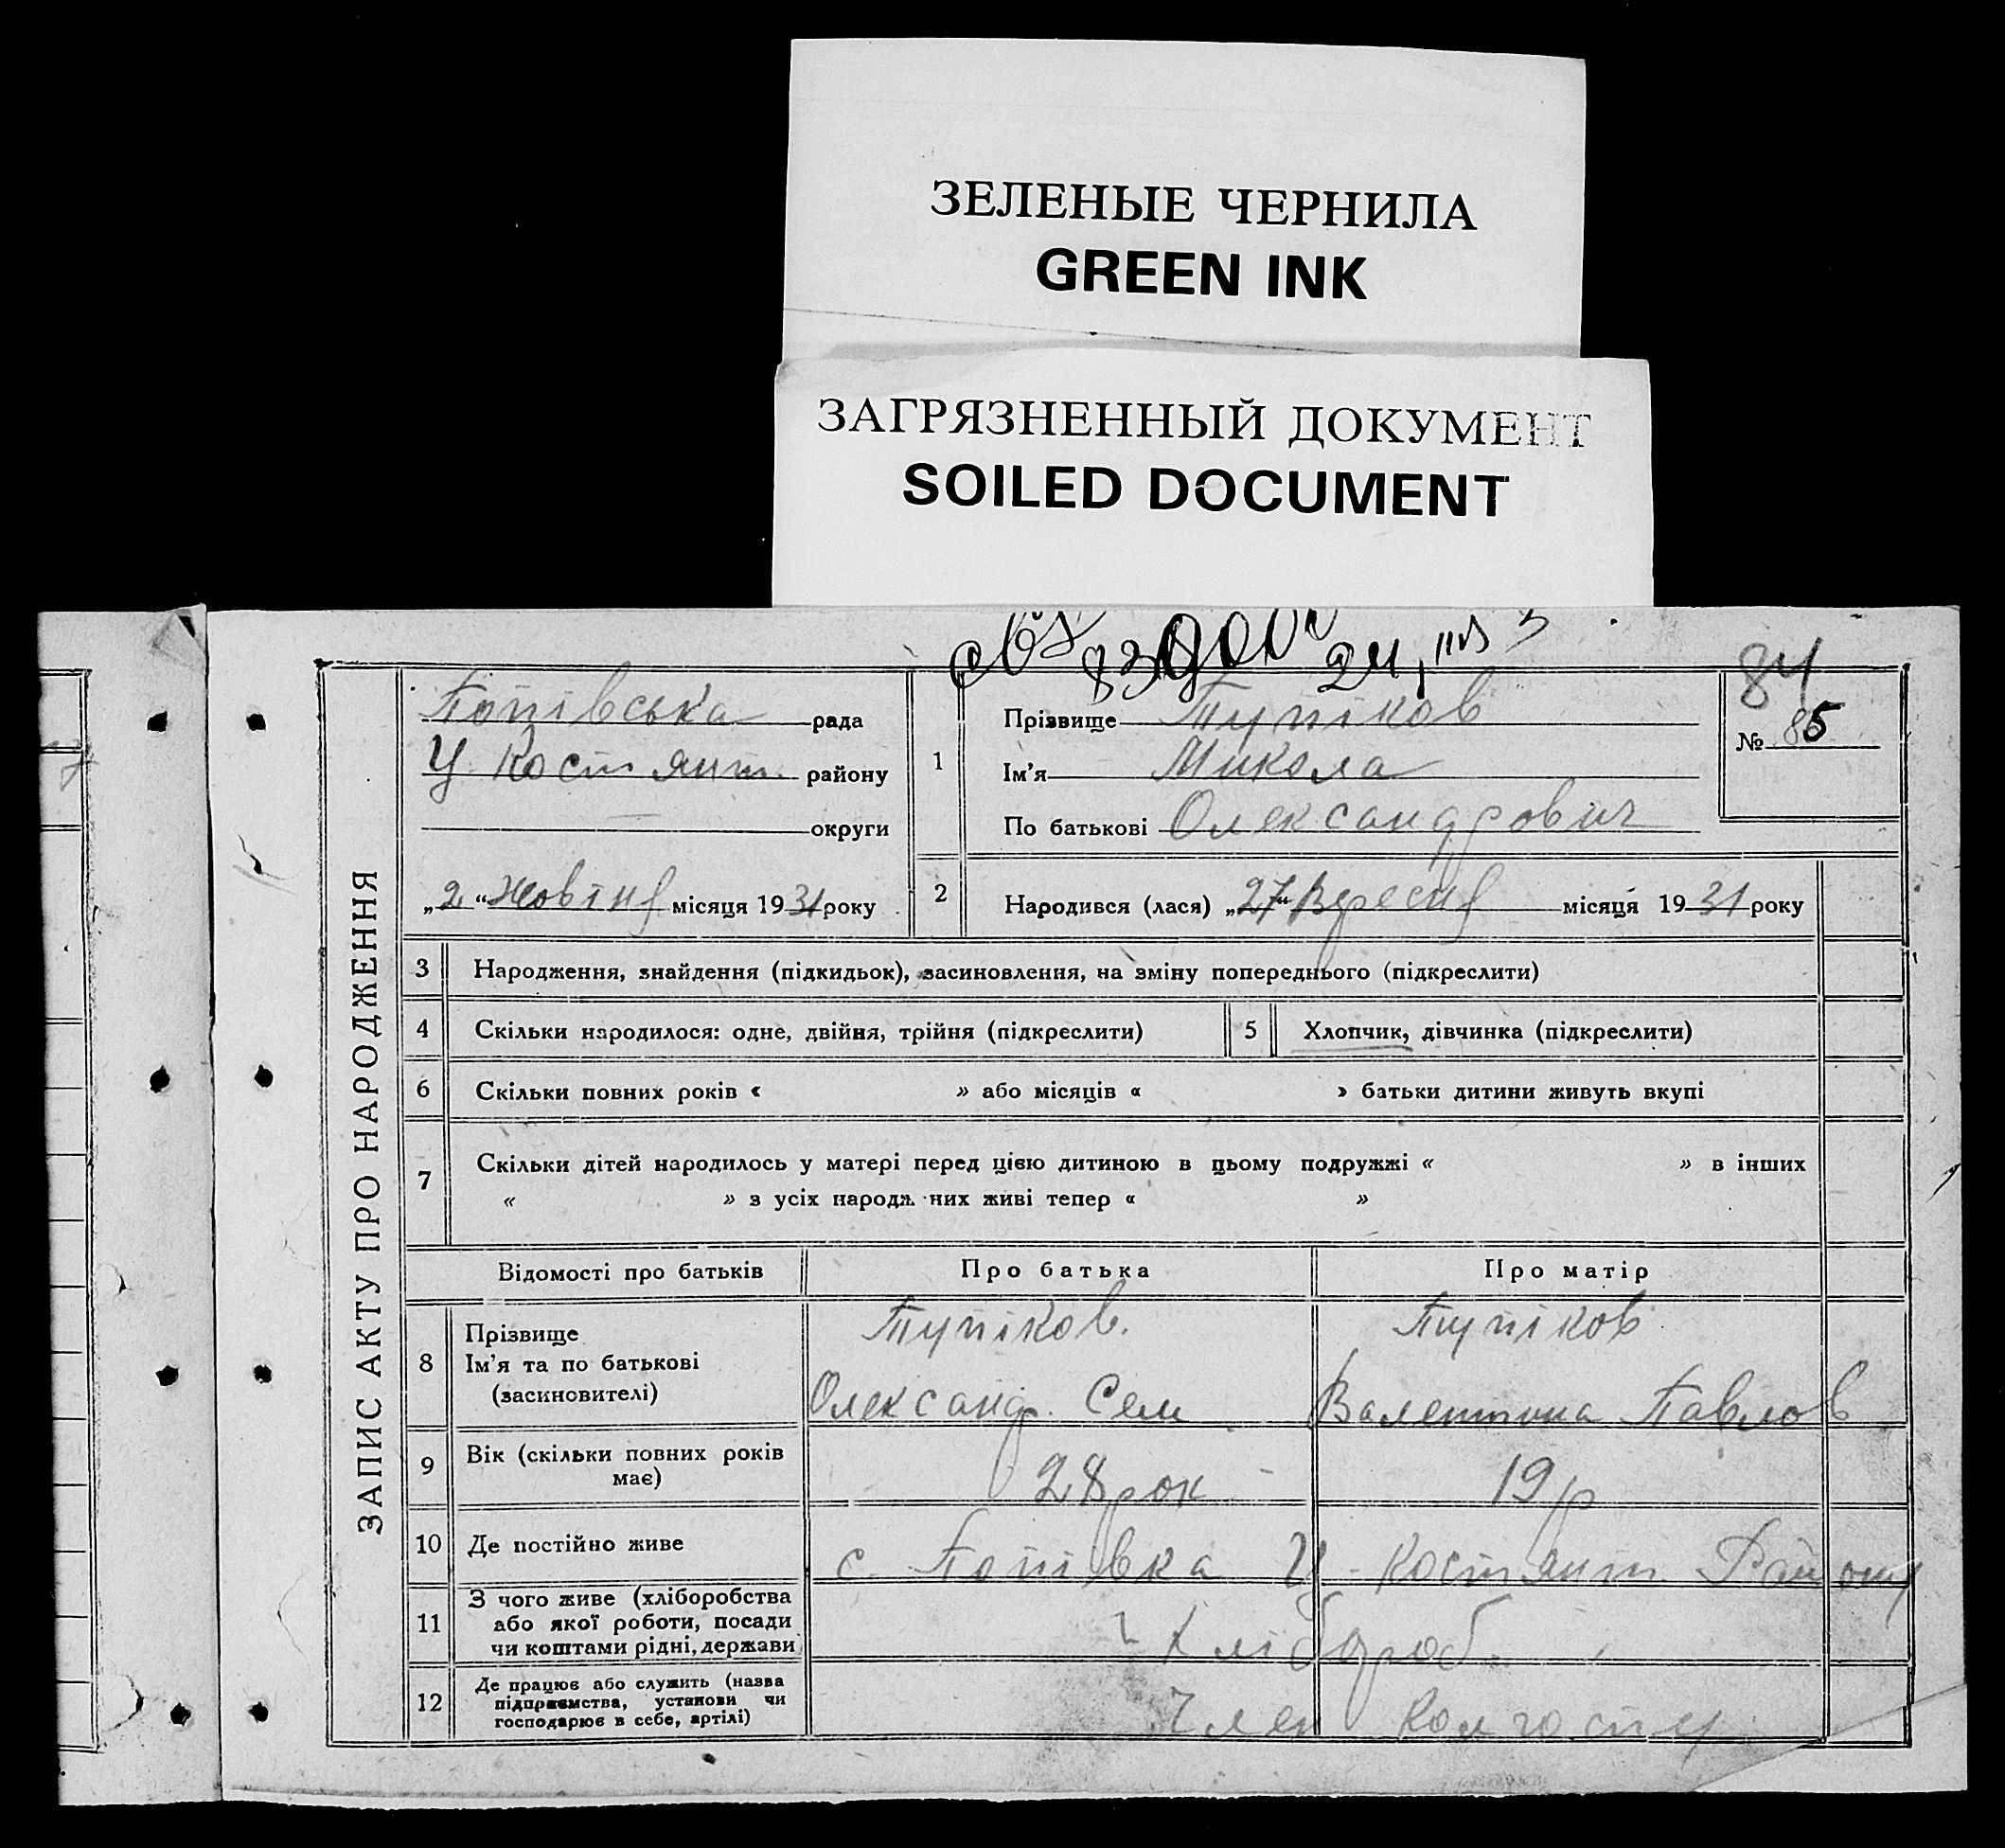 ЗЕЛЕНЫЕ ЧЕРНИЛА
GREEN INK
ЗАГРЯЗНЕННЫЙ ДОКУМЕНТ
SOILED DOCUMENT
84
ЗАПИС АКТУ ПРО НАРОДЖЕННЯ
Попівська рада
У. Костянт. району
округи
„2“ Жовтня місяця 1931 року
1
Прізвище Тупіков
Ім'я Микола
По батькові Олександрович
№ 85
2 Народився (лася) „27“ Вересня місяця 1931 року
3 Народження, знайдення (підкидьок), засиновлення, на зміну попереднього (підкреслити)
4 Скільки народилося: одне, двійня, трійня (підкреслити)
5 Хлопчик, дівчинка (підкреслити)
6 Скільки повних років « » або місяців « » батьки дитини живуть вкупі
7 Скільки дітей народилось у матері перед цією дитиною в цьому подружжі « » в інших
« » з усіх народж них живі тепер « »
Відомості про батьків Про батька Про матір
8 Прізвище
Ім'я та по батькові
(засиновителі)
Тупіков.
Олександ. Сем
Тупіков
Валентина Павлов
9 Вік (скільки повних років
має)
28 рок
19 р
10 Де постійно живе
с. Попівка У-Костянт. Району
11 З чого живе (хліборобства
або якої роботи, посади
чи коштами рідні, держави
Хлібороб.
12 Де працює або служить (назва
підприємства, установи чи
господарює в себе, артілі)
Член Колгоспу